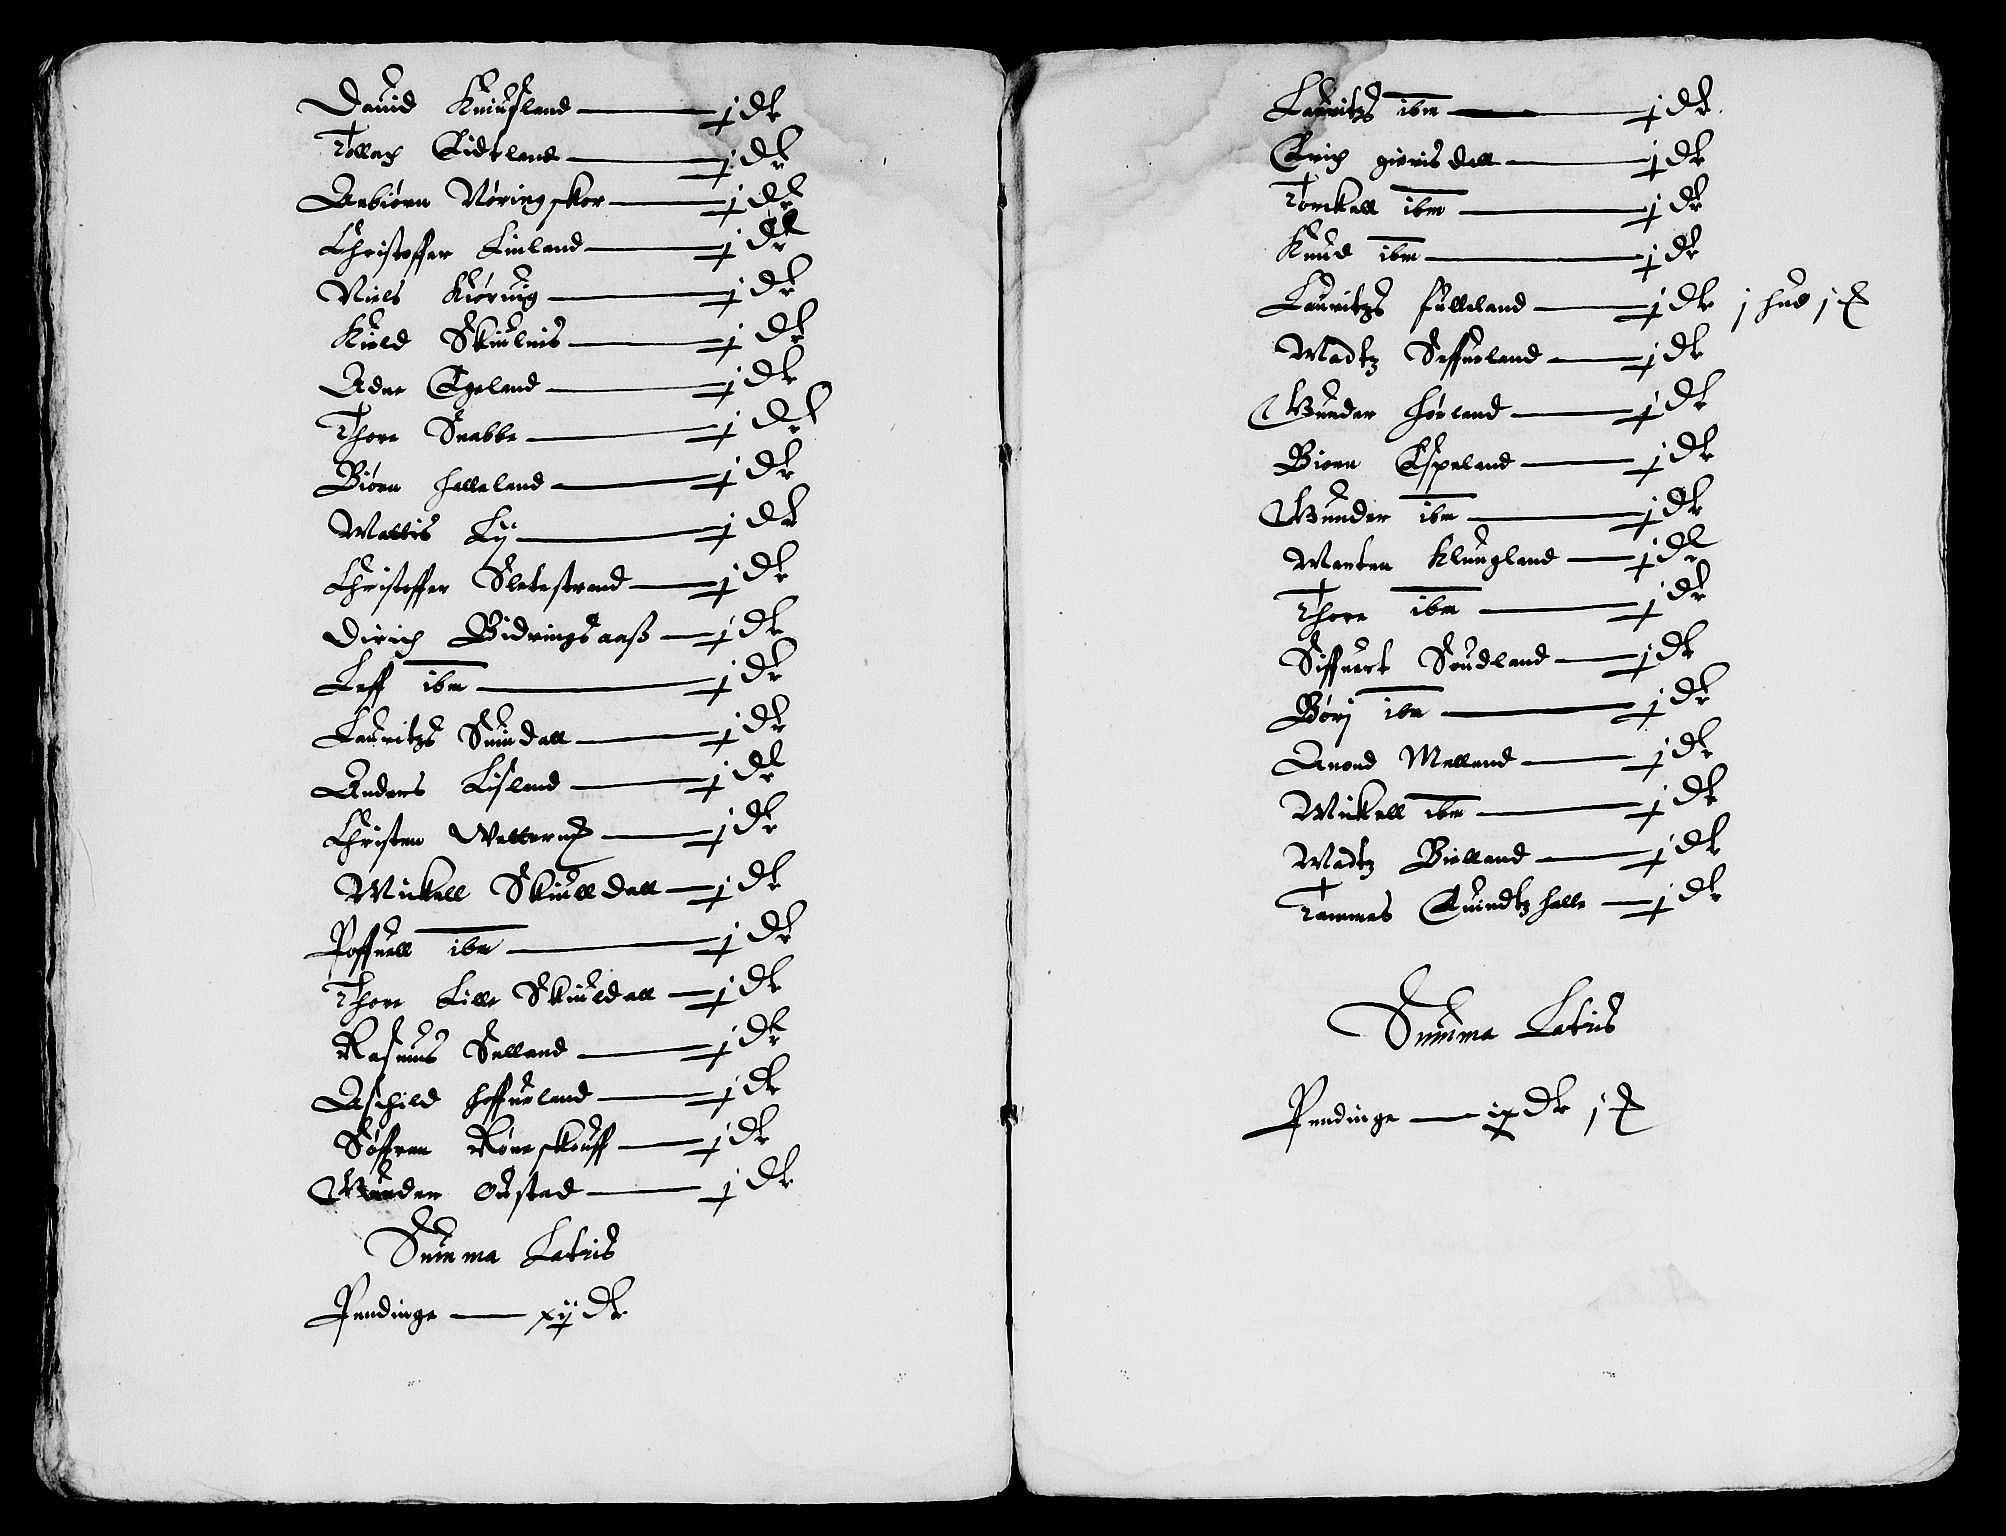 Dauid Kniufland — j dr
Tollach Eideland — j dr
Aebiørn Nøringskor — j dr
Christoffer Linland — j dr
Niels Kiøruig — j dr
Kield Skiulnis — j dr
Adne Egeland — j dr
Thore Snabbe — j dr
Biørn Helleland — j dr
Mattis Lij — j dr
Christoffer Sletestrand — j dr
Dirich Bidringsaaß — j dr
Leff ibm — j dr
Lauritzs Suindall — j dr
Anders Lisland — j dr
Christen — j dr
Mickell Skiulldall — j dr
Poffuell ibm — j dr
Thore Lille Skiuldall — j dr
Rasmus Selland — j dr
Aschild Heffueland — j dr
Søffren Røneskouff — j dr
Gunder Oustad — j dr
Summa Lateris
Pendinge — xij dr
Lauritzs ibm — j dr
Erich gierisdall — j dr
Torckell ibm — j dr
Knud ibm — j dr
Lauritzs Fulleland — j dr j hud j
Madtz Seffueland — j dr
Gunder Hørland — j dr
Biørn Espeland — j dr
Gunder ibm — j dr
Marten Klungland — j dr
Thore ibm — j dr
Siffuert Soudland — j dr
Børj ibm — j dr
Anond Melland — j dr
Mickell ibm — j dr
Madtz Bielland — j dr
Tammes — j dr
Summa Lateris
Pendinge — ix dr j